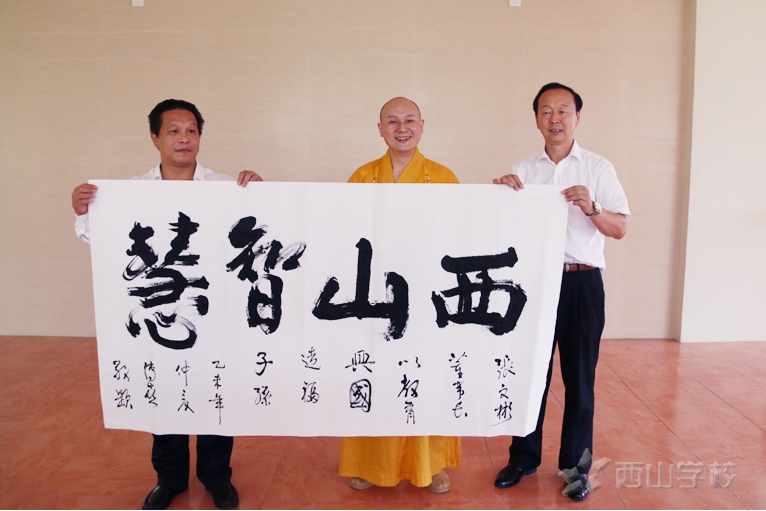 西山智慧
張文彬
董事长
以教育
興國
造福
子孫
乙未年
仲夏
西山学校